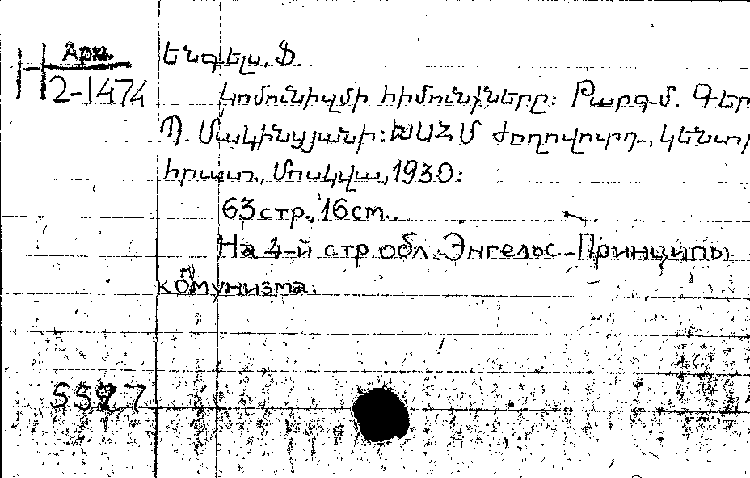 Арм.
Н 2-1474
Էնգելս, Ֆ.
Կոմունիզմի հիմունքները: Թարգմ. Գեր
Պ. Մակինցյանի: ԽՍՀՄ ժողովուրդ. կենտր
հրատ., Մոսկվա, 1930:
63 стр., 16 ст.
На 4-й стр обл. Энгельс - Принципы
коммунизма.
5527